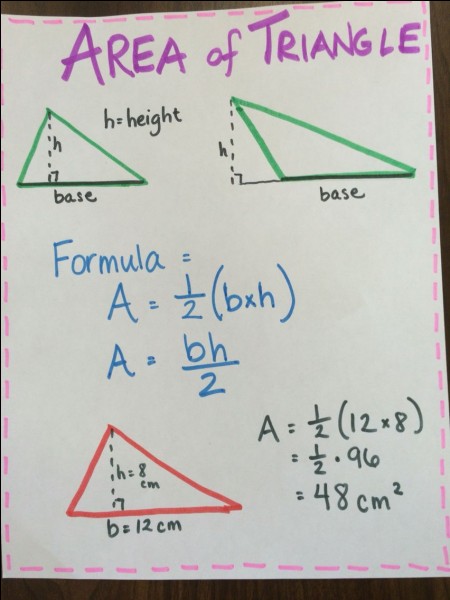 AREA of TRIANGLE
h=height
h
base
h
base
Formula =
A = 1/2 (b×h)
A = bh/2
h=8 cm
b=12cm
A = 1/2 (12×8)
= 1/2 · 96
= 48 cm²